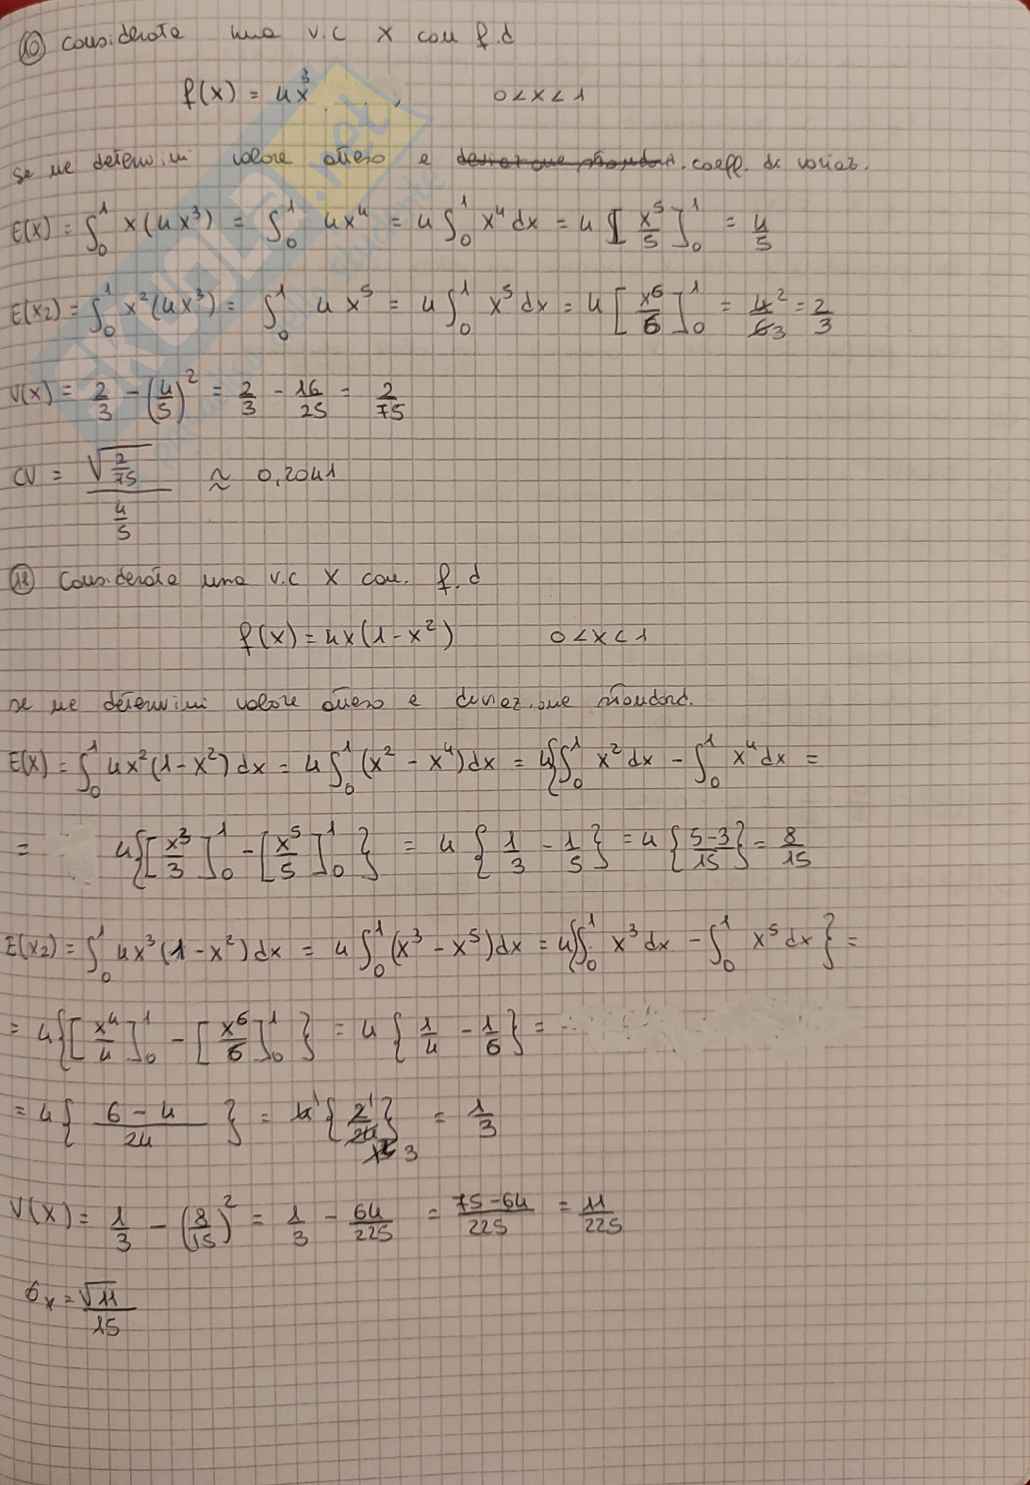 10) Considerate una v.c X con f.d
f(x) = 4x³ , 0<x<1
se ne determini valore atteso e coeff. di variaz.
E(X) = ∫₀¹ x(4x³) = ∫₀¹ 4x⁴ = 4∫₀¹ x⁴dx = 4[x⁵/5]₀¹ = 4/5
E(x2) = ∫₀¹ x²(4x³) = ∫₀¹ 4x⁵ = 4∫₀¹ x⁵dx = 4[x⁶/6]₀¹ = 4²/63 = 2/3
V(X) = 2/3 - (4/5)² = 2/3 - 16/25 = 2/75
CV = √(2/75) / (4/5) ≈ 0,2041
11) Considerate una v.c X con. f.d
f(x) = 4x(1-x²) 0<x<1
se ne determini valore atteso e deviazione standard.
E(X) = ∫₀¹ 4x²(1-x²)dx = 4∫₀¹(x²-x⁴)dx = 4{∫₀¹ x²dx - ∫₀¹ x⁴dx =
= 4{[x³/3]₀¹ - [x⁵/5]₀¹} = 4{1/3 - 1/5} = 4{5-3/15} = 8/15
E(x2) = ∫₀¹ 4x³(1-x²)dx = 4∫₀¹(x³-x⁵)dx = 4{∫₀¹ x³dx - ∫₀¹ x⁵dx} =
= 4{[x⁴/4]₀¹ - [x⁶/6]₀¹} = 4{1/4 - 1/6} =
= 4{6-4/24} = 4¹{2¹/24 3} = 1/3
V(X) = 1/3 - (8/15)² = 1/3 - 64/225 = 75-64/225 = 11/225
σx = √11/15